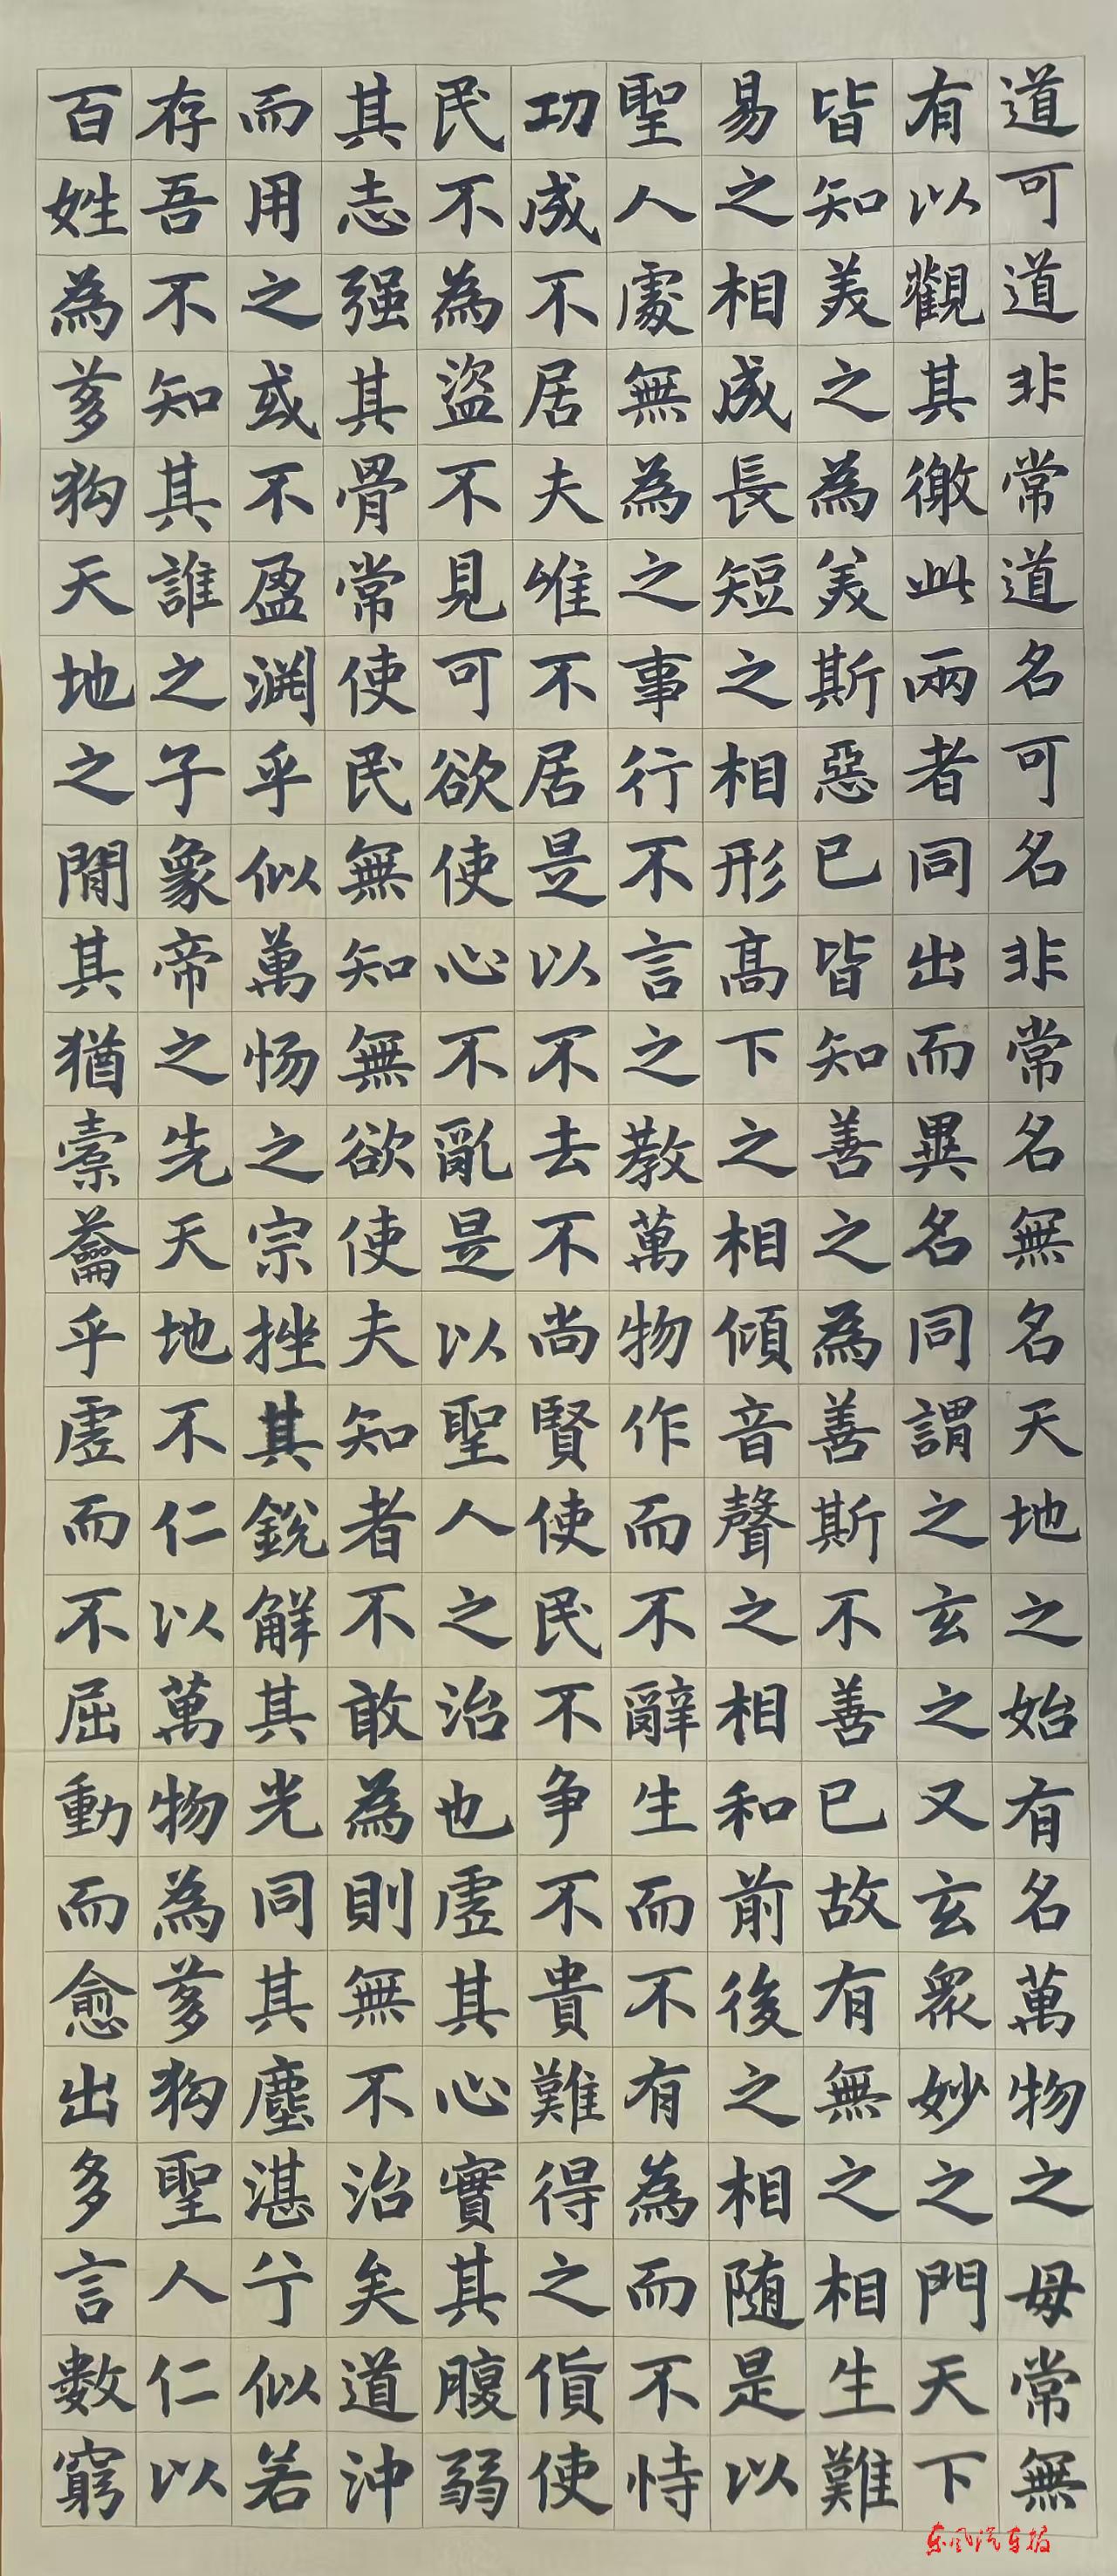 道可道非常道名可名非常名無名天地之始有名萬物之母常無
有以觀其徼此兩者同出而異名同謂之玄之又玄衆妙之門天下
皆知美之為美斯惡已皆知善之為善斯不善已故有無之相生難
易之相成長短之相形高下之相傾音聲之相和前後之相随是以
聖人處無為之事行不言之教萬物作而不辭生而不有為而不恃
功成不居夫唯不居是以不去不尚賢使民不争不貴難得之貨使
民不為盜不見可欲使心不亂是以聖人之治也虛其心實其腹弱
其志强其骨常使民無知無欲使夫知者不敢為則無不治矣道沖
而用之或不盈渊乎似萬物之宗挫其銳解其光同其塵湛兮似若
存吾不知其誰之子象帝之先天地不仁以萬物為芻狗聖人仁以
百姓為芻狗天地之間其猶橐籥乎虛而不屈動而愈出多言數窮
东风汽车报